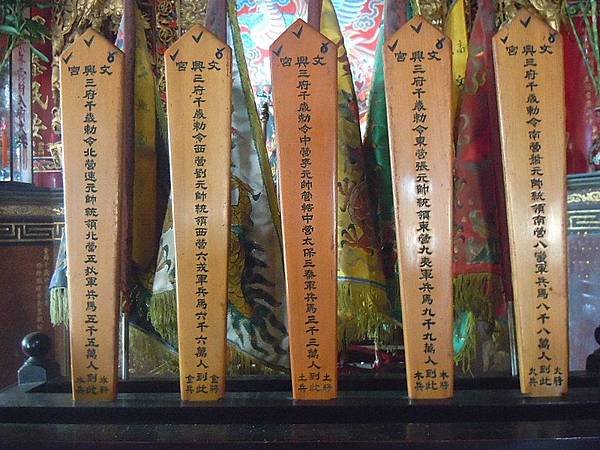 文興宮
三府千歲勅令南營蕭元帥統領南營八蠻軍兵馬八千八萬人到此
火將
火兵
文興宮
三府千歲勅令東營張元帥統領東營九夷軍兵馬九千九萬人到此
木將
木兵
文興宮
三府千歲勅令中營李元帥管轄中營太保三秦軍兵馬三千三萬人到此
土將
土兵
文興宮
三府千歲勅令西營劉元帥統領西營六戎軍兵馬六千六萬人到此
金將
金兵
文興宮
三府千歲勅令北營連元帥統領北營五狄軍兵馬五千五萬人到此
水將
水兵